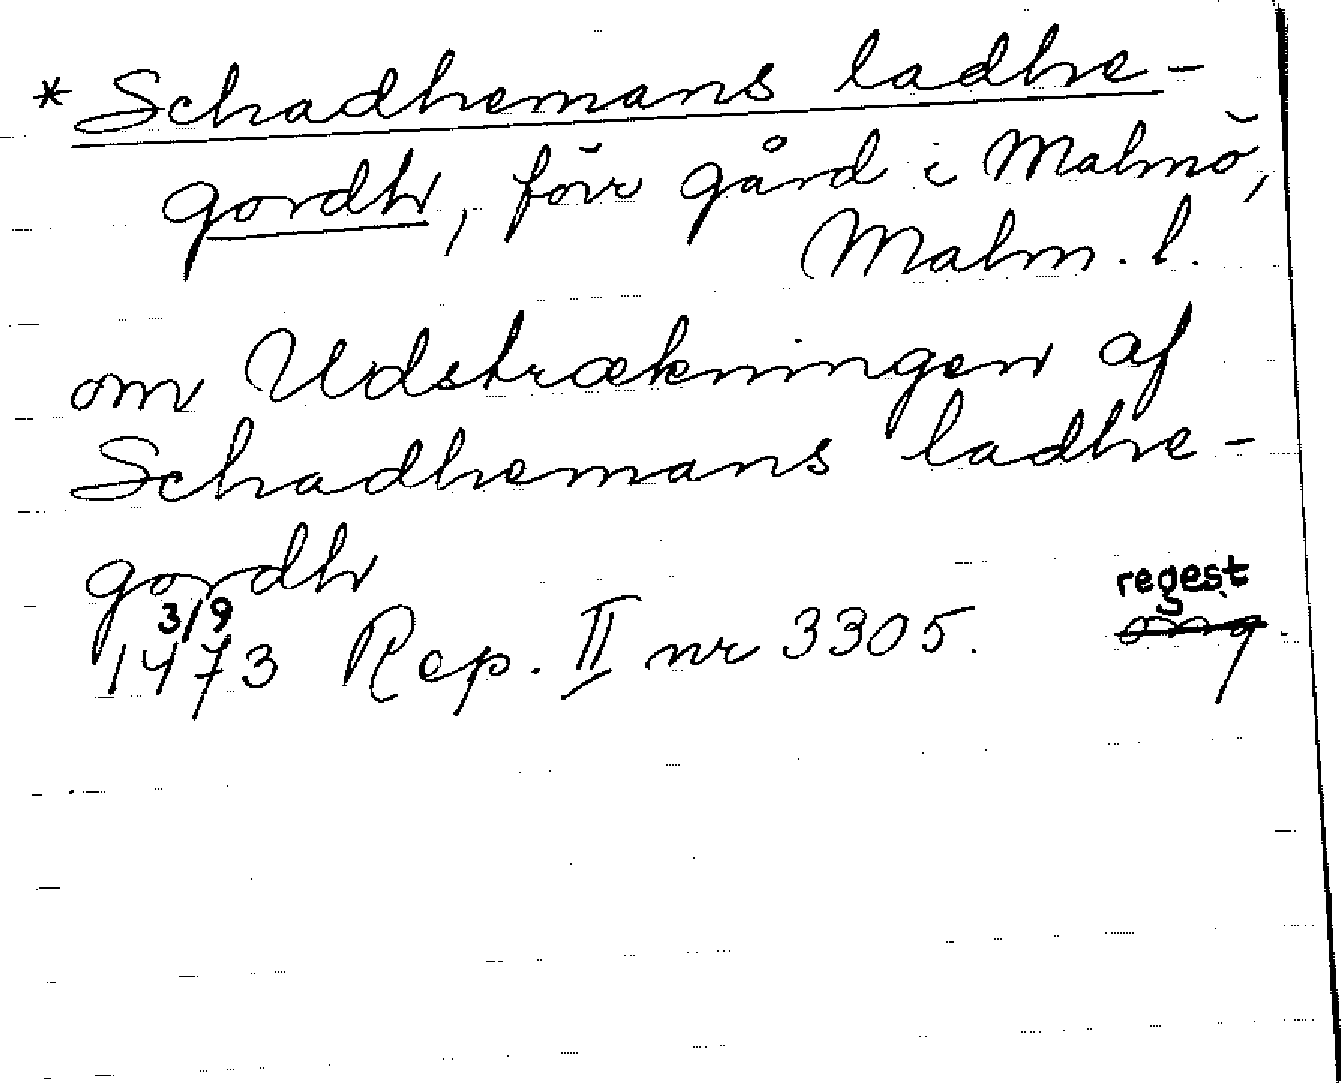 * Schadhemans ladhe-
gordh, förr gård i Malmö,
Malm. l.
om Udstrækningen af
Schadhemans ladhe-
gordh
3/9 regest
1473 Rep. II nr 3305.